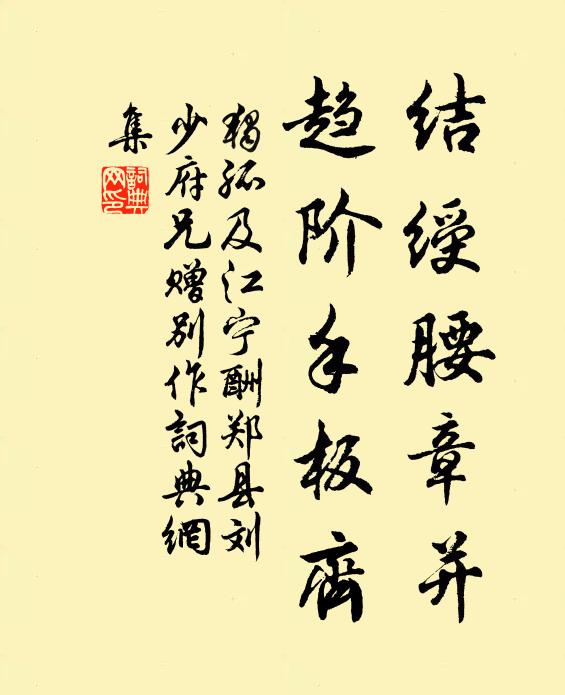 结绶腰章并
趋阶手板齐
独孤及江宁酬郑县刘
少府兄赠别作詞典網
集
詞典网印